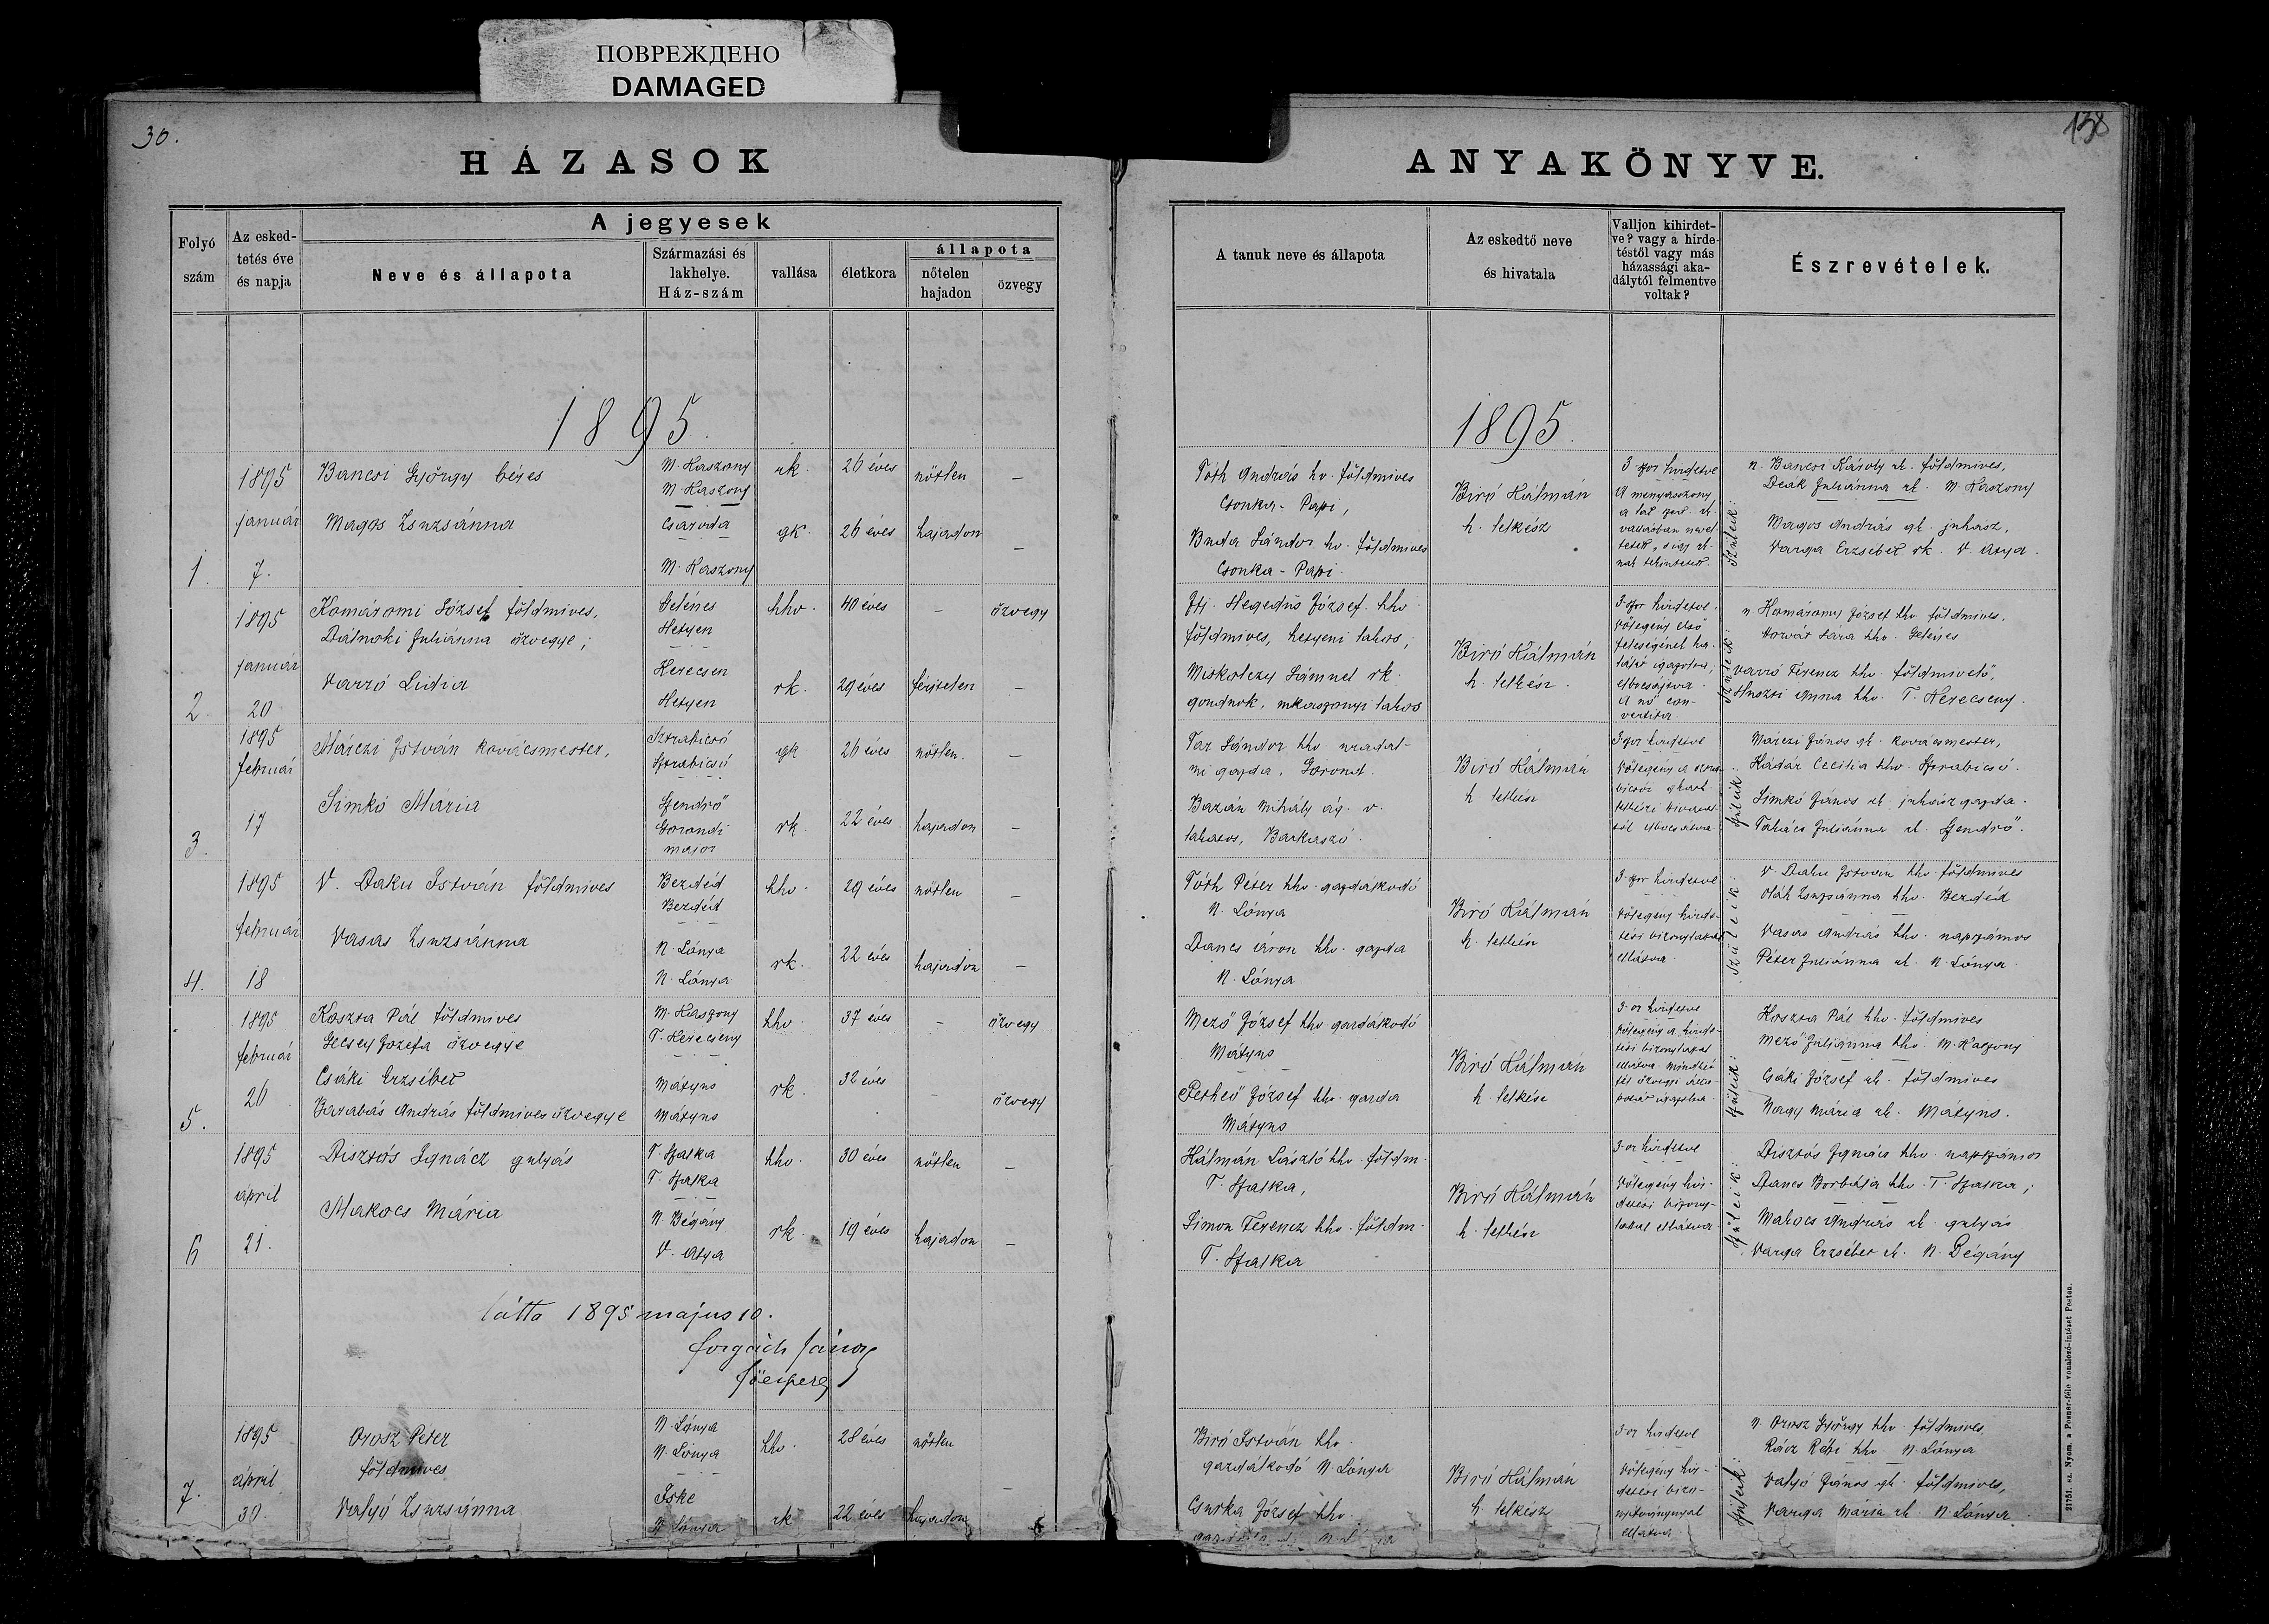 ПОВРЕЖДЕНО
DAMAGED
30.
138
HÁZASOK
ANYAKÖNYVE.
Folyó
szám
Az esked-
tetés éve
és napja
A jegyesek
Neve és állapota
Származási és
lakhelye.
Ház-szám
vallása
életkora
állapota
nőtelen
hajadon
özvegy
A tanuk neve és állapota
Az eskedtő neve
és hivatala
Valljon kihirdet-
ve? vagy a hirde-
téstől vagy más
házassági aka-
dálytól felmentve
voltak?
Észrevételek.
1895.
1895.
1.
1895
január
7.
Bancsi György béres
Magos Zsuzsánna
M. Kaszony
M. Kaszony
Csaroda
M. Kaszony
rk.
gk.
26 éves
26 éves
nőtlen
hajadon
Tóth András hv. földmives
Csonka-Papi,
Buda Sándor hv. földmives
Csonka-Papi.
Biró Kálmán
h. lelkész
3-szor hirdetve
A menyasszony
n. Bancsi Károly rk. földmives,
Deák Juliánna rk. M. Kaszony
Szüleik:
Magos András gk. juhász,
Varga Erzsébet rk. V. Atya.
2.
1895
január
20
Komáromi József földmives,
Dálnoki Juliánna özvegye;
Varró Lidia
Gelénes
Hetyen
Kerecsen
Hetyen
hhv.
rk.
40 éves
29 éves
férjtelen
özvegy
Ifj. Hegedüs József hhv.
földmives, hetyeni lakos;
Miskolczy Sámuel rk.
gondnok, mkaszonyi lakos
Biró Kálmán
h. lelkész
3-szor hirdetve.
Vőlegény első
feleségének ha-
lálát igazolva;
elbocsájtva.
A nő con-
vertita
n. Komáromy József hhv. földmives,
Horvát Sára hhv. Gelénes
Szüleik:
Varró Ferencz hhv. földmivelő,
Huszti Anna hhv. T. Kerecseny.
3.
1895
február
17
Márczi István kovácsmester,
Simkó Mária
Sztrabicsó
Sztrabicsó
Szendrő
Gorondi
major
gk
rk.
26 éves
22 éves
nőtlen.
hajadon
Tar Sándor hhv. uradal-
mi gazda, Gorond.
Bazán Mihály ág. v.
lakatos, Barkaszó.
Biró Kálmán
h. lelkész
3-szor hirdetve
Márczi János gk. kovácsmester,
Hádár Cecilia hhv. Sztrabicsó.
Szüleik:
Simkó János rk. juhászgazda.
Takács Juliánna rk. Szendrő.
4.
1895
február
18
V. Daku István földmives
Vasas Zsuzsánna
Bezdéd
Bezdéd
N. Lónya
N. Lónya
hhv.
rk.
29 éves
22 éves
nőtlen
hajadon
Tóth Péter hhv. gazdálkodó
N. Lónya
Dancs Áron hhv. gazda
N. Lónya
Biró Kálmán
h. lelkész
3-szor hirdetve
Vőlegény hirde-
tési bizonylattal
ellátva.
V. Daku István hhv. földmives
Oláh Zsuzsánna hhv. Bezdéd
Szüleik:
Vasas András hhv. napszámos
Péter Juliánna rk. N. Lónya
5.
1895
február
26
Koszta Pál földmives
Gecsey Jozefa özvegye
Csáki Erzsébet
Barabás András földmives özvegye
M. Kaszony
T. Kerecseny
Mátyus
Mátyus
hhv.
rk.
37 éves
32 éves
özvegy
özvegy
Mező József hhv. gazdálkodó
Mátyus
Pethő József hhv. gazda
Mátyus
Biró Kálmán
h. lelkész
3-or hirdetve
Koszta Pál hhv. földmives
Mező Juliánna hhv. M. Kaszony
Szüleik:
Csáki József rk. földmives
Nagy Mária rk. Mátyus.
6
1895
ápril
21.
Disztós Ignácz gulyás
Makocs Mária
T. Szalka
T. Szalka
N. Bégány
V. Atya
hhv.
rk.
30 éves
19 éves
nőtlen
hajadon
Kálmán László hhv. földm.
T. Szalka,
Simon Ferencz hhv. földm.
T. Szalka
Biró Kálmán
h. lelkész
3-or hirdetve
Vőlegény hir-
detési bizony-
lattal ellátva
Disztós Ignácz hhv. napszámos
Dancs Borbála hhv. T. Szalka;
Szüleik:
Makocs András rk. gulyás
Varga Erzsébet rk. N. Bégány
Látta 1895 május 10.
Forgách János
főesperes
7.
1895
ápril
30.
Orosz Péter
földmives
Valyó Zsuzsánna
N. Lónya
N. Lónya
Iske
N. Lónya
hhv.
rk
28 éves
22 éves
nőtlen
hajadon
Biró István hhv.
gazdálkodó N. Lónya
Csuska József hhv.
Biró Kálmán
h. lelkész
3-or hirdetve
Vőlegény hir-
detési bizo-
nyitványnyal
ellátva
n. Orosz György hhv. földmives,
Rácz Rébi hhv. N. Lónya
Szüleik:
Valyó János gk. földmives,
Varga Mária rk. N. Lónya
21751. sz. Nyom. a Posner-féle vonalozó-intézet Pesten.